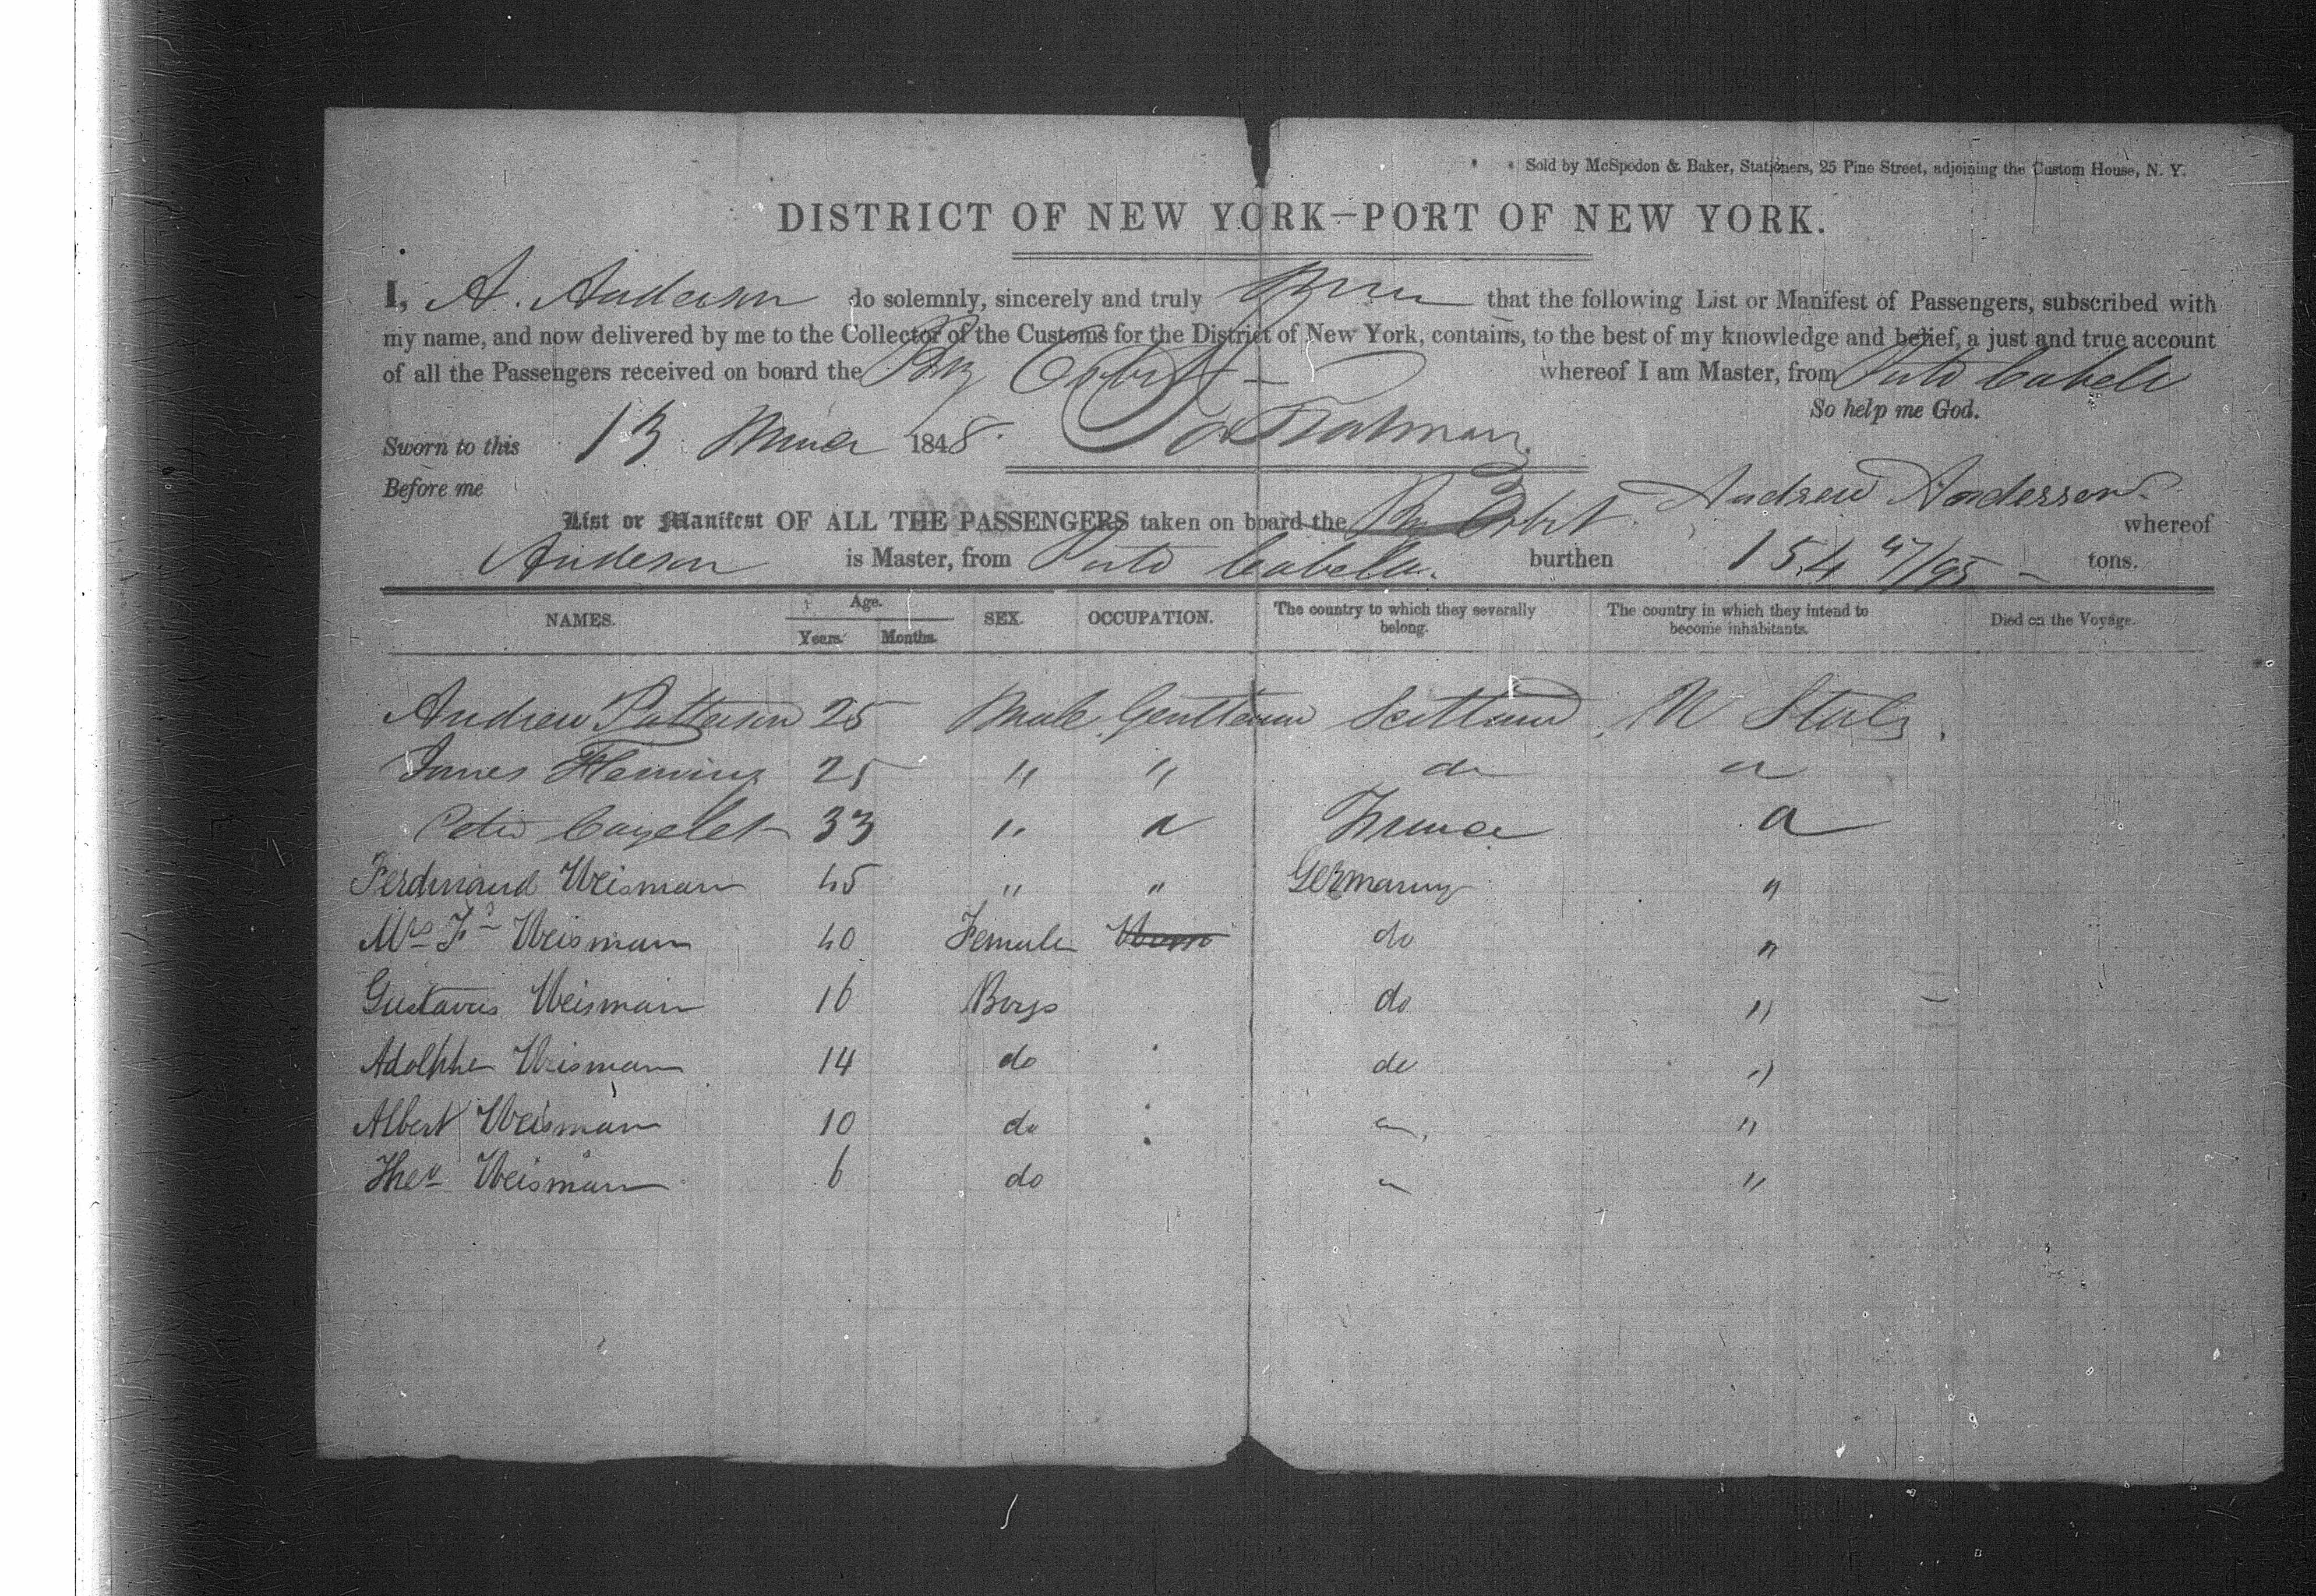 Sold by McSpedon & Baker, Stationers, 25 Pine Street, adjoining the Custom House, N. Y.
DISTRICT OF NEW YORK—PORT OF NEW YORK.
I, A. Anderson do solemnly, sincerely and truly that the following List or Manifest of Passengers, subscribed with
my name, and now delivered by me to the Collector of the Customs for the District of New York, contains, to the best of my knowledge and belief, a just and true account
of all the Passengers received on board the Brig Orbit whereof I am Master, from Puto Cabello
So help me God.
Sworn to this 13 1848.
Before me
Andrew Anderson
List or Manifest OF ALL THE PASSENGERS taken on board the Orbit whereof
Anderson is Master, from Puto Cabello. burthen 154 47/95 tons.
NAMES. Age. Years. Months. SEX. OCCUPATION. The country to which they severally belong. The country in which they intend to become inhabitants. Died on the Voyage.
Andrew Patterson 25 Male Gentleman Scotland U States
James Fleming 25 " " do do
Peter 33 " " France "
Ferdinand Weisman 45 " " Germany "
Mrs Fd Weisman 40 Female do "
Gustavus Weisman 16 Boys do "
Adolphe Weisman 14 do do "
Albert Weisman 10 do " "
Weisman 6 do " "